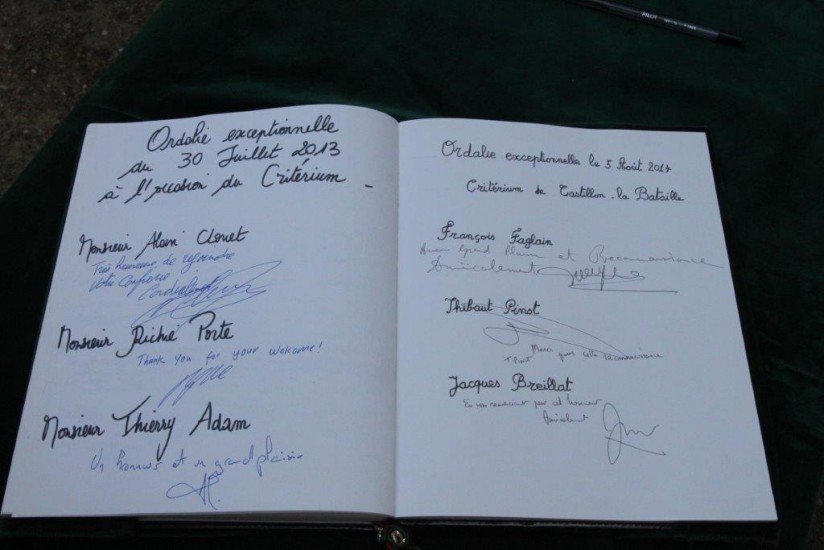 Ordalie exceptionnelle
du 30 Juillet 2013
à l'occasion du Critérium
Monsieur Alain Clouet
Très heureux de
votre Confrérie
Monsieur Richie Porte
Thank you for your welcome!
Monsieur Thierry Adam
Un honneur et un grand plaisir
Ordalie exceptionnelle le 5 Août 2014
Critérium de Castillon-la Bataille
François Faglain
Avec Grand Plaisir et Reconnaissance
Amicalement
Thibaut Pinot
Merci pour cette reconnaissance
Jacques Breillat
En vous remerciant pour cet honneur
PILOT